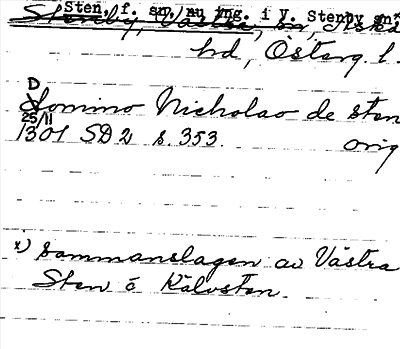 Sten, f. sn/nu yng. i V. Stenby sn x)
Stenby, Västra, sn, Aska
hd, Österg. l.
Domino Nicholao de sten
25/11
1301 SD 2 s. 353. orig
x) Sammanslagen av Västra
Sten o Kälvsten.